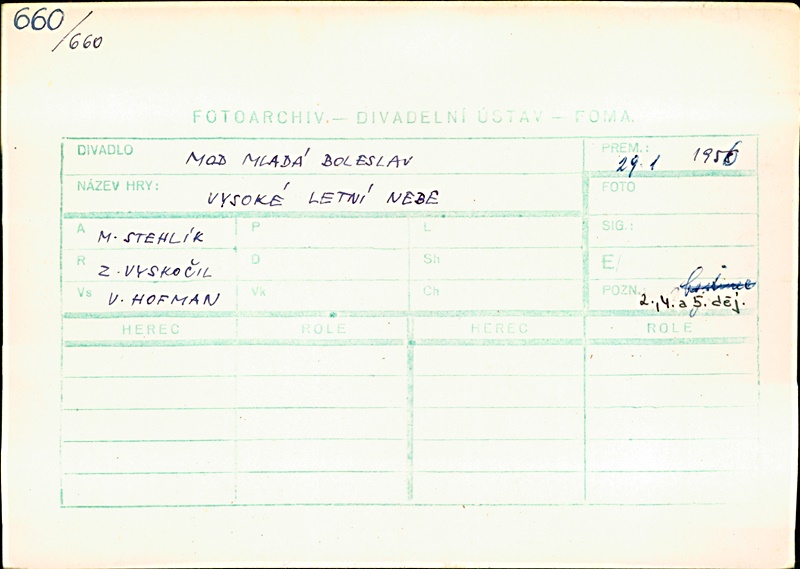 660/660
FOTOARCHIV.— DIVADELNÍ ÚSTAV — FOMA.
DIVADLO MOD MLADÁ BOLESLAV PREM.: 29.1 1956
NÁZEV HRY: VYSOKÉ LETNÍ NEBE FOTO
A M. STEHLÍK P L SIG.:
R Z. VYSKOČIL D Sh E/
Vs V. HOFMAN Vk Ch POZN.: 2., 4. a 5. děj.
HEREC ROLE HEREC ROLE